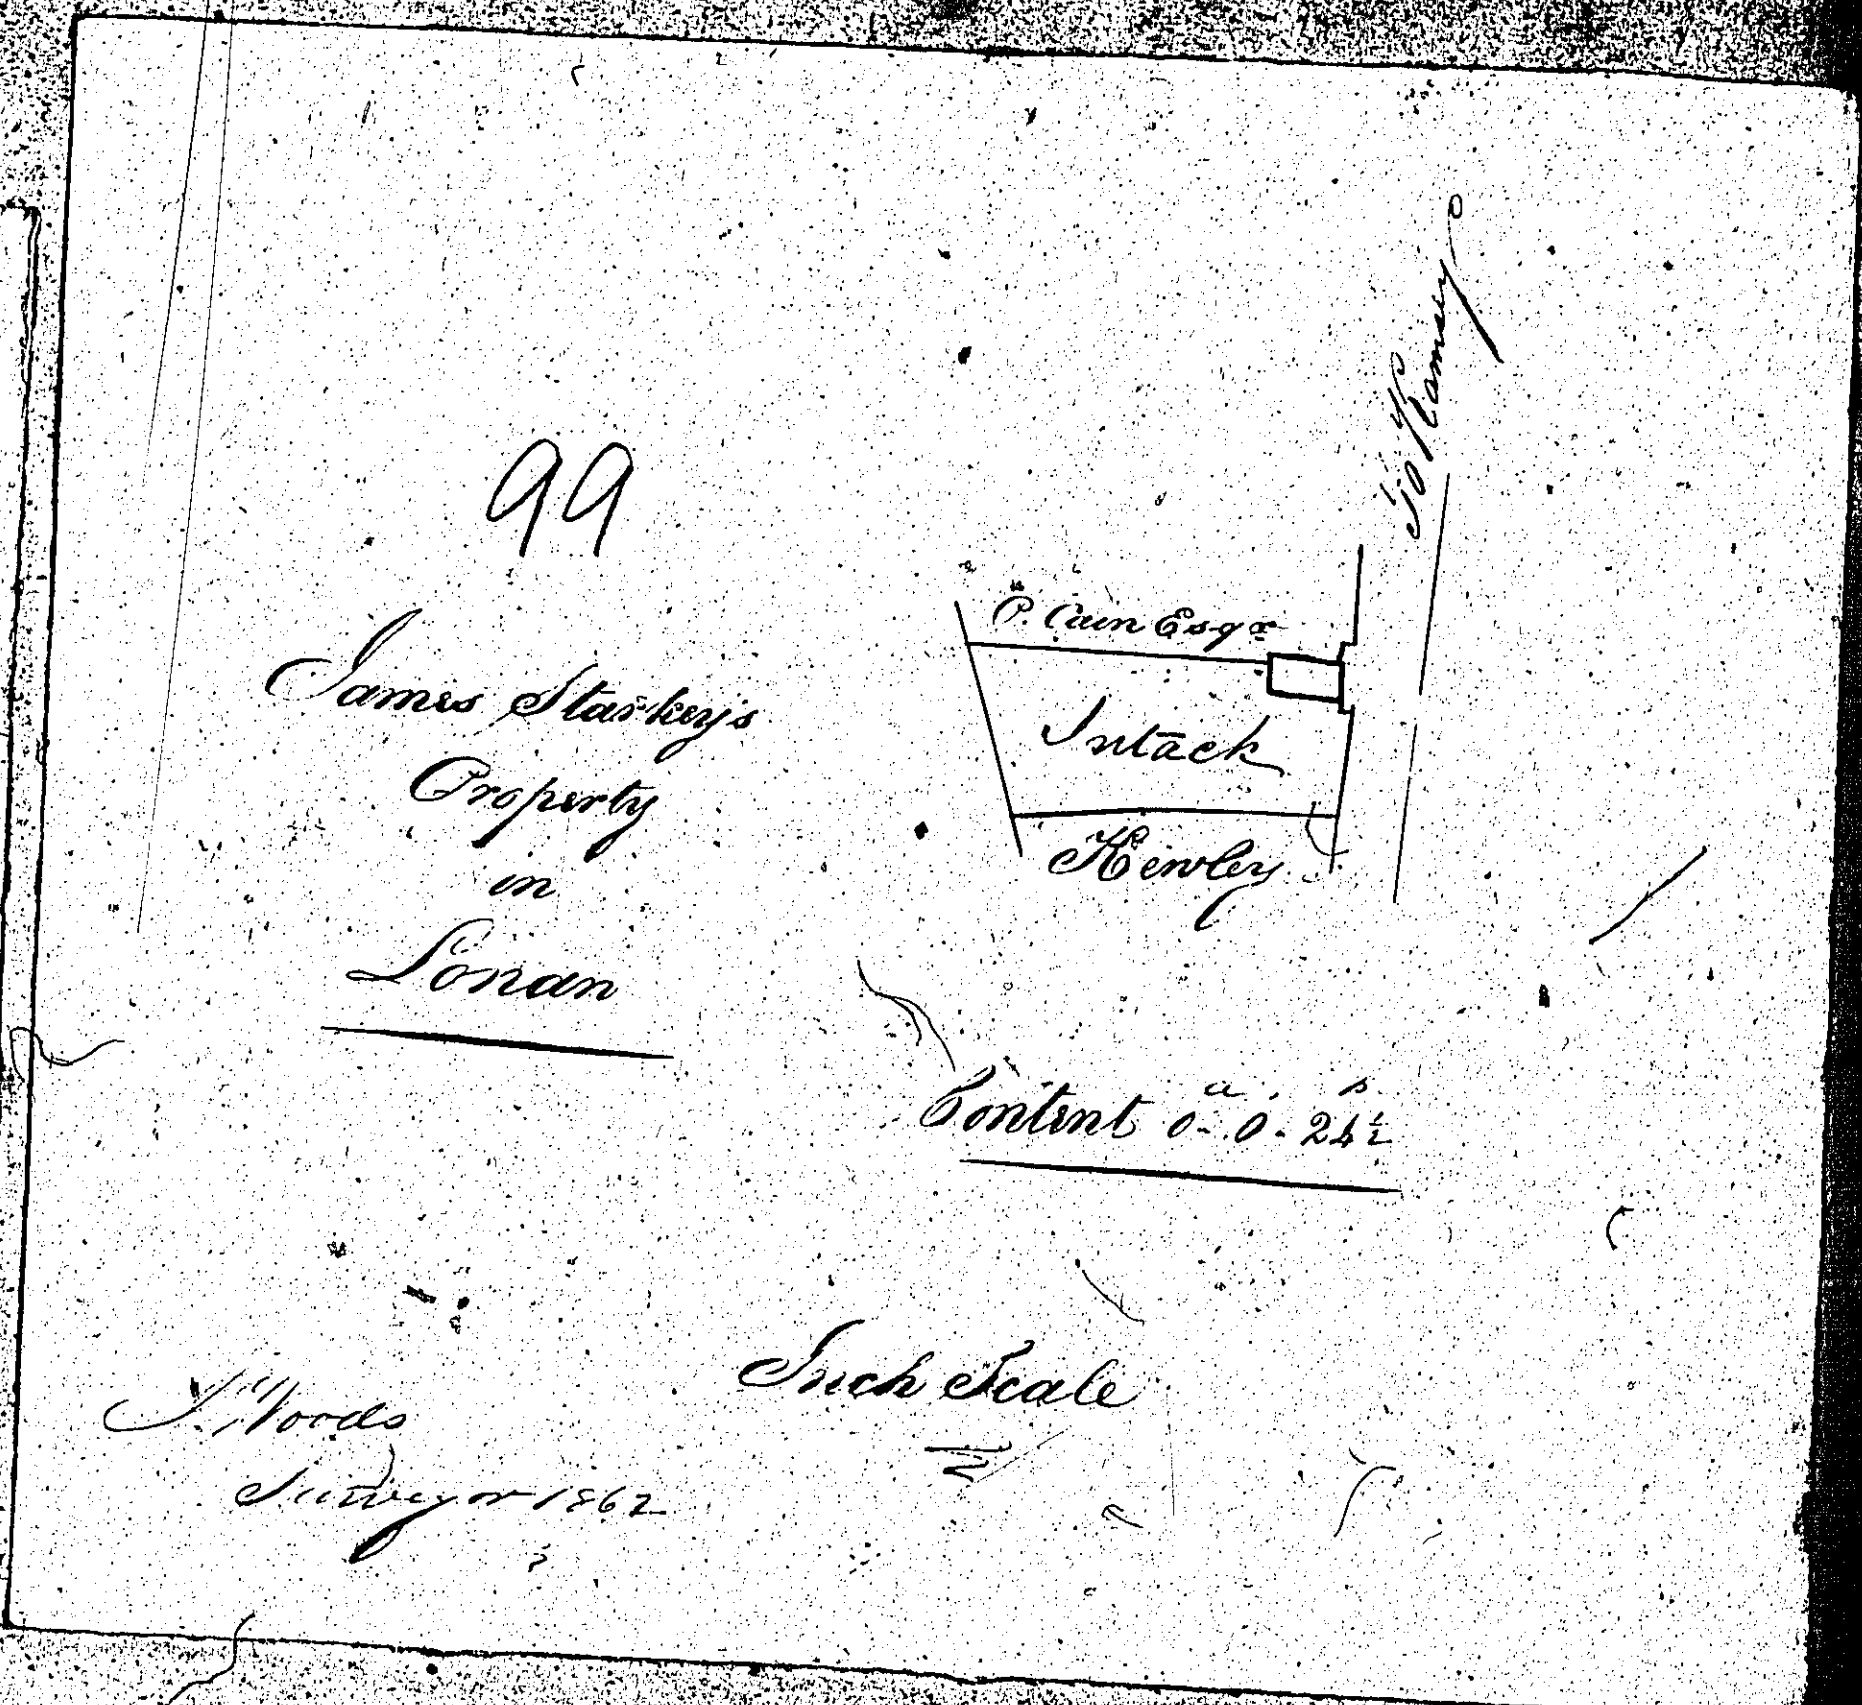 99
James Starkey's
Property
in
Lonan
To Ramsey
P. Cain Esqr
Intack
Kewley
a. p.
Content 0-.0-24½
Inch Scale
J. Woods
Surveyor 1862